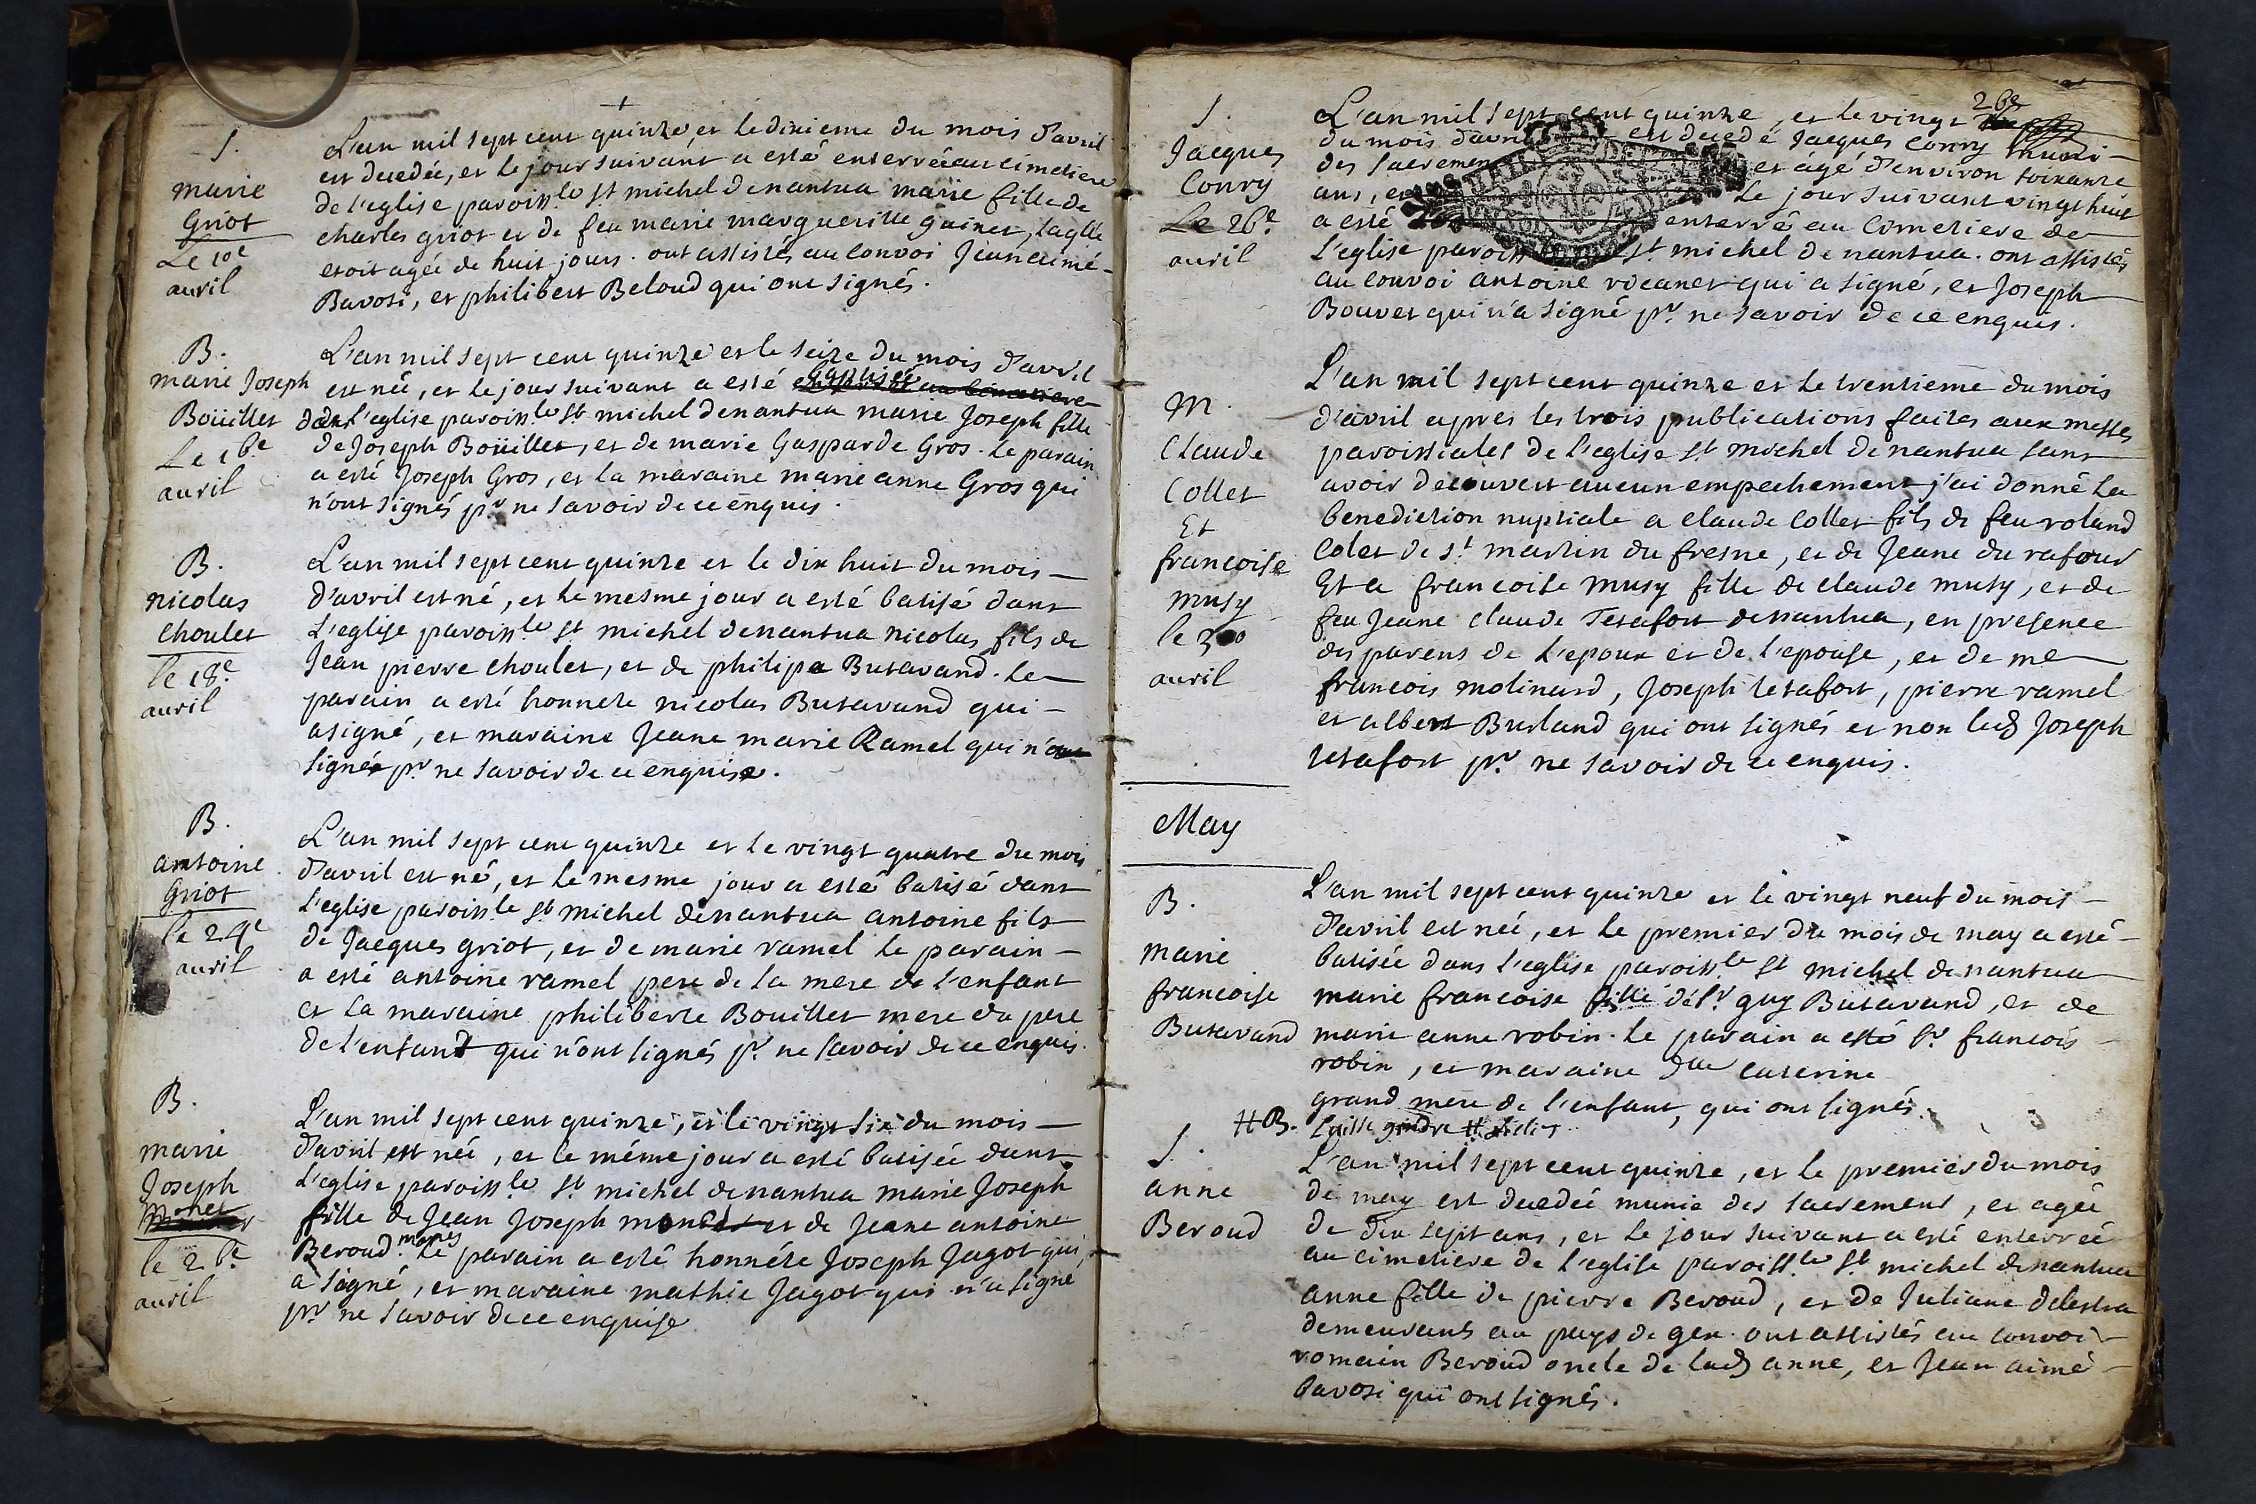 S.
marie
Griot
Le 10e
avril
L'an mil sept cent quinze et le dixieme du mois d'avril
est decedée, et le jour suivant a esté enterrée au cimetiere
de l'eglise paroiss.le st michel de nantua marie fille de
charles griot et de feu marie marguerite guinet, laqlle
etoit agée de huit jours. ont assistés au convoi Jean aimé
Bavosi, et philibert Beloud qui ont signés.
B.
marie Joseph
Boüillet
Le 16e
avril
L'an mil sept cent quinze et le seize du mois d'avril
est née, et le jour suivant a esté baptisée
dans l'eglise paroiss.le st michel de nantua marie Joseph fille
de Joseph Boüillet, et de marie Gasparde Gros. le parain
a esté Joseph Gros, et la maraine marie anne Gros qui
n'ont signés pr ne savoir de ce enquis.
B.
nicolas
choulet
le 18e
avril
L'an mil sept cent quinze et le dix huit du mois
d'avril est né, et le mesme jour a esté batisé dans
L'eglise paroiss.le st michel de nantua nicolas fils de
Jean pierre choulet, et de philipe Butavand. le
parain a esté honnete nicolas Butavand qui
a signé, et maraine Jeane marie Ramel qui n'a
signée pr ne savoir de ce enquise.
B.
antoine
Griot
le 24e
avril
L'an mil sept cent quinze et le vingt quatre du mois
d'avril est né, et le mesme jour a esté batisé dans
l'eglise paroiss.le st michel de nantua antoine fils
de Jacques griot, et de marie ramel le parain
a esté antoine ramel pere de la mere de l'enfant
et la maraine philiberte Bouillet mere du pere
de l'enfant qui n'ont signés pr ne savoir de ce enquis.
B.
marie
Joseph
le 26e
avril
L'an mil sept cent quinze, et le vingt six du mois
d'avril est née, et le même jour a esté batisée dans
L'eglise paroiss.le st michel de nantua marie Joseph
fille de Jean Joseph et de Jeane antoine
Beroud. mariés le parain a esté honnéte Joseph Jagot qui
a signé, et maraine mathie Jagot qui n'a signé
pr ne savoir de ce enquise
S.
Jacques
Convy
Le 26e
avril
L'an mil sept cent quinze, et le vingt 26e
du mois d'avril est decedé Jacques Convy muni
des sacremens et âgé d'environ soixante
ans, et le jour suivant vingt huit
a esté enterré au cimetiere de
L'eglise paroiss st michel de nantua. ont assistés
au convoi antoine vocanet qui a signé, et Joseph
Bouvet qui n'a signé pr ne savoir de ce enquis.
M.
Claude
Collet
Et
francoise
musy
le 30
avril
L'an mil sept cent quinze et le trentieme du mois
d'avril apres les trois publications faites aux messes
paroissiales de l'eglise st michel de nantua sans
avoir decouvert aucun empechement j'ai donné la
benediction nuptiale a claude Collet fils de feu roland
Colet de st martin du fresne, et de Jeane du rafour
Et a francoise musy fille de claude musy, et de
feu Jeane claude Tetafort de nantua, en presence
des parens de l'epoux et de l'epouse, et de me
francois molinard, Joseph tetafort, pierre ramel
et albert Burland qui ont signés et non led Joseph
tetafort pr ne savoir de ce enquis.
May
B.
marie
francoise
Butavand
L'an mil sept cent quinze et le vingt neuf du mois
d'avril est née, et le premier du mois de may a esté
batisée dans l'eglise paroiss.le st michel de nantua
marie francoise fille de sr guy Butavand, et de
marie anne robin. le parain a esté sr francois
robin, et maraine dlle caterine
grand mere de l'enfant, qui ont signés.
# B.
S.
anne
Beroud
L'an mil sept cent quinze, et le premier du mois
de may est decedée munie des sacremens, et agée
de dix sept ans, et le jour suivant a esté enterrée
au cimetiere de l'eglise paroiss.le st michel de nantua
anne fille de pierre Beroud, et de Juliane delestra
demeurants au pays de gex. ont assistés au convoi
romain Beroud oncle de lad anne, et Jean aimé
bavosi qui ont signés.